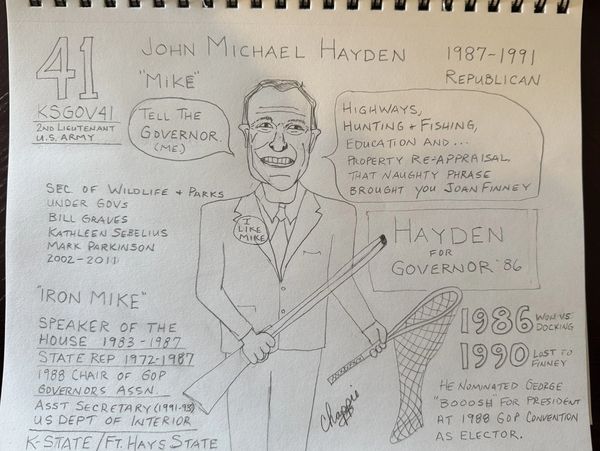 41
KSGOV41
2ND LIEUTENANT
U.S. ARMY
JOHN MICHAEL HAYDEN
"MIKE"
1987-1991
REPUBLICAN
TELL THE
GOVERNOR.
(ME.)
HIGHWAYS,
HUNTING + FISHING,
EDUCATION AND...
PROPERTY RE-APPRAISAL.
THAT NAUGHTY PHRASE
BROUGHT YOU JOAN FINNEY
SEC OF WILDLIFE + PARKS
UNDER GOVS
BILL GRAVES
KATHLEEN SEBELIUS
MARK PARKINSON
2002-2011
I
LIKE
MIKE
HAYDEN
FOR
GOVERNOR '86
"IRON MIKE"
SPEAKER OF THE
HOUSE 1983-1987
STATE REP 1972-1987
1988 CHAIR OF GOP
GOVERNORS ASSN.
ASST SECRETARY (1991-93)
US DEPT OF INTERIOR
K-STATE / FT. HAYS STATE
1986 WON VS.
DOCKING
1990 LOST TO
FINNEY
HE NOMINATED GEORGE
"BOOOSH FOR PRESIDENT
AT 1988 GOP CONVENTION
AS ELECTOR.
Chappie